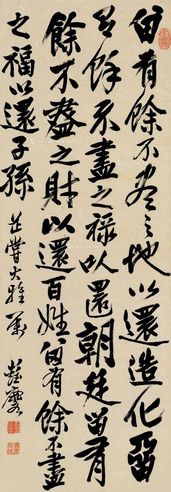 留有餘不盡之地以還造化留
有餘不盡之祿以還朝廷留有
餘不盡之財以還百姓留有餘不盡
之福以還子孫 大雅